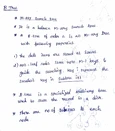 B Tree
* M-way Search Tree
* It is a balance m-way Search Tree
* A B Tree of order m is an m-way Tree
with following properties
i) The data items are stored at leaves
ii) non-leaf nodes store upto m-1 keys to
guide the searching, key i represent the
smallest key in subtree i+1
* B-tree is a specialized multiway tree
used to store the record in a disk.
* There are no. of subtrees to each
node